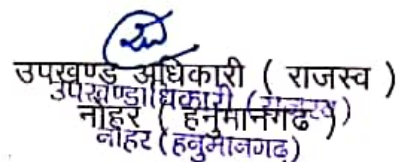 उपखण्ड अधिकारी ( राजस्व )
उपखण्डाधिकारी (राजस्व)
नोहर ( हनुमानगढ )
नोहर (हनुमानगढ)